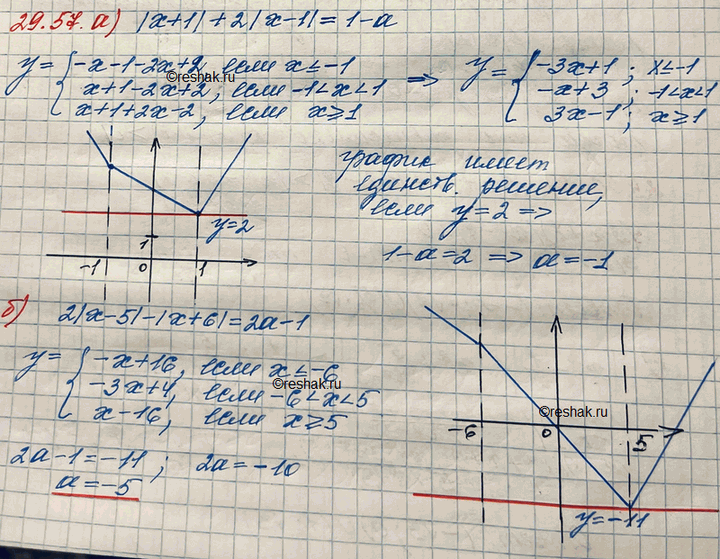 29.57. а) |x+1| + 2|x-1| = 1-a
y = { -x-1-2x+2, если x≤-1
x+1-2x+2, если -1<x<1
x+1+2x-2, если x≥1
=> y = { -3x+1; x≤-1
-x+3; -1<x<1
3x-1; x≥1
©reshak.ru
график имеет
единств. решение,
если y=2 =>
1-a=2 => a=-1
y=2
1
-1 0 1
б) 2|x-5|-|x+6|=2a-1
y = { -x+16, если x≤-6
-3x+4, если -6<x<5
x-16, если x≥5
©reshak.ru
2a-1=-11; 2a=-10
a=-5
©reshak.ru
-6 0 5
y=-11